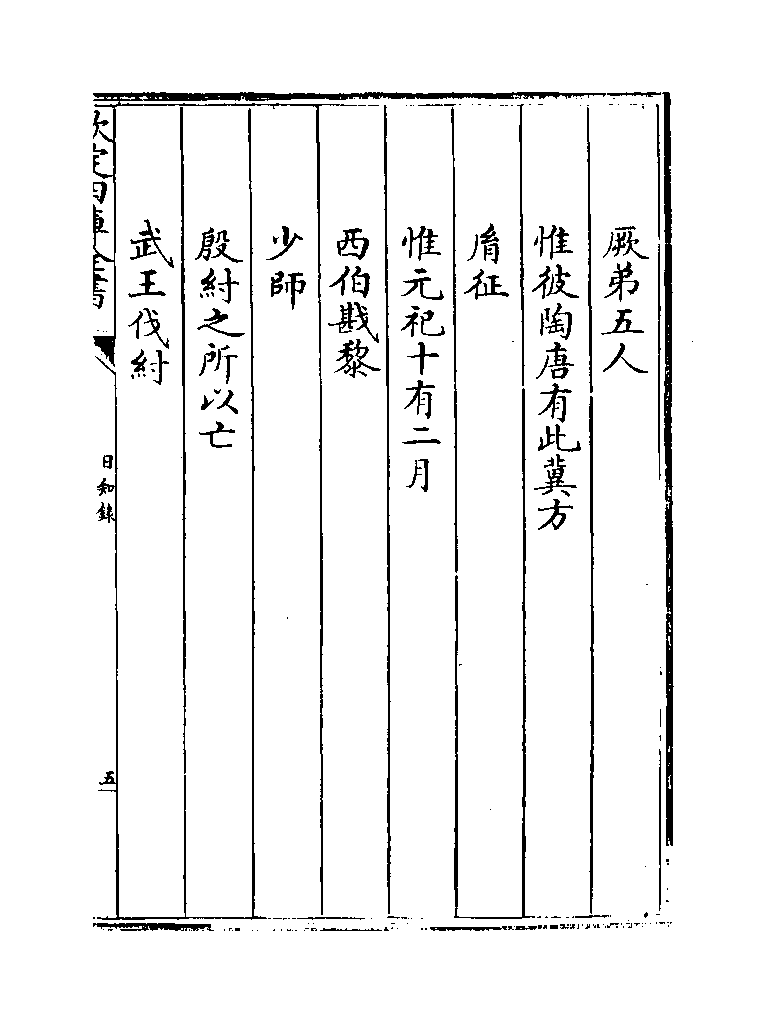 厥弟五人
惟彼陶唐有此冀方
胤征
惟元祀十有二月
西伯戡黎
少師
殷紂之所以亡
武王伐紂
欽定四庫全書
日知錄
五